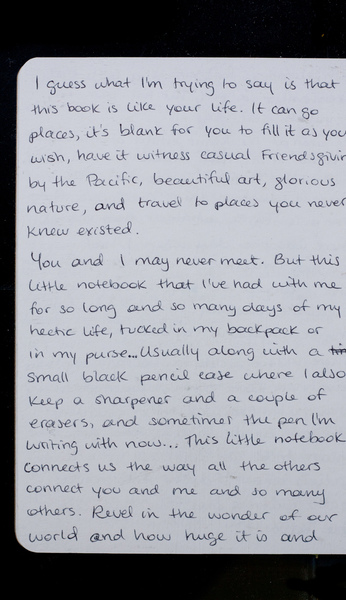 I guess what I'm trying to say is that
this book is like your life. It can go
places, it's blank for you to fill it as you
wish, have it witness casual Friendsgivin
by the Pacific, beautiful art, glorious
nature, and travel to places you never
knew existed.
You and I may never meet. But this
little notebook that I've had with me
for so long and so many days of my
hectic life, tucked in my backpack or
in my purse... Usually along with a
small black pencil case where I also
keep a sharpener and a couple of
erasers, and sometimes the pen I'm
writing with now... This little notebook
connects us the way all the others
connect you and me and so many
others. Revel in the wonder of our
world and how huge it is and